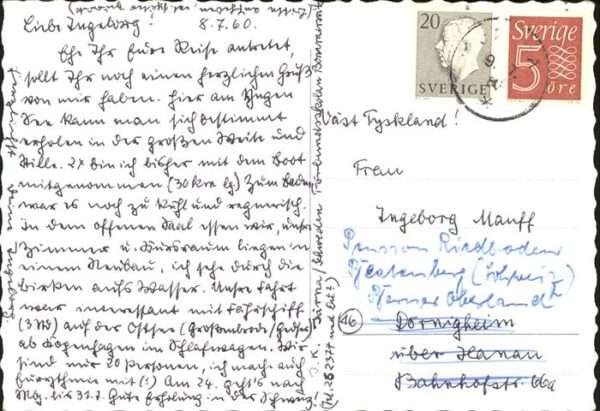 Liebe Ingeborg! 8.7.60.
Ehe Ihr Eure Reise antretet,
sollt Ihr noch einen herzlichen Gruß
von mir haben. Hier am
See kann man sich bestimmt
erholen in der großen Weite und
Stille. 2x bin ich bisher mit dem Boot
mitgenommen (30 km lg.) Zum Baden
war es noch zu kühl und regnerisch.
In dem offenen Saal essen wir, unsere
Zimmer u. Kursraum liegen in
einem Neubau, ich sehe durch die
Birken aufs Wasser. Unsere Fahrt
war interessant mit Fährschiff
(3 Std) auf der Ostsee (Großenbrode/Gedser)
ab Kopenhagen im Schlafwagen. Wir
sind nur 20 Personen, ich mache auch
Eurythmie mit (!) Am 24. geht's nach
bis 31.7. Gute Erholung in der Schweiz!
20
SVERIGE
Sverige
5
öre
Väst Tyskland!
Frau
Ingeborg Manff
Pension Riedboden
Beatenberg (Schweiz)
Berner Oberland
(16)
Dörnigheim
über Hanau
Bahnhofstr. 66a
Järna/Schweden